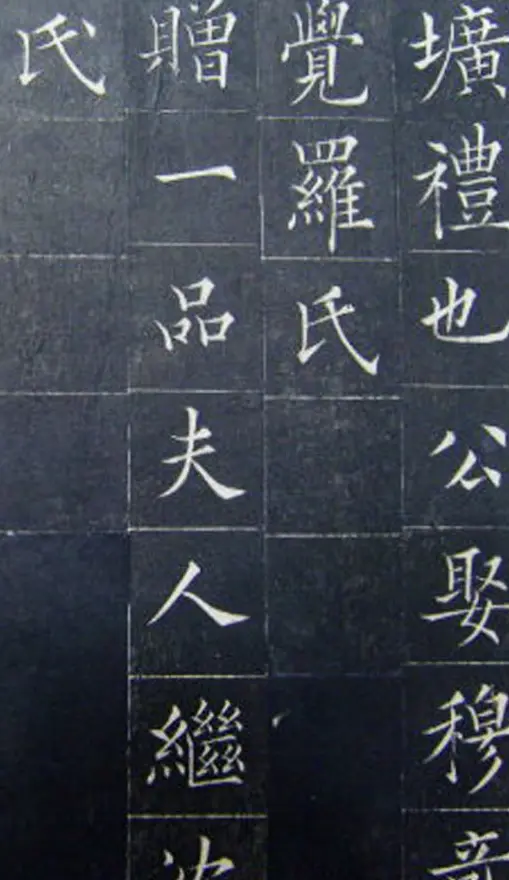 壙禮也公娶穆
覺羅氏
贈一品夫人繼
氏